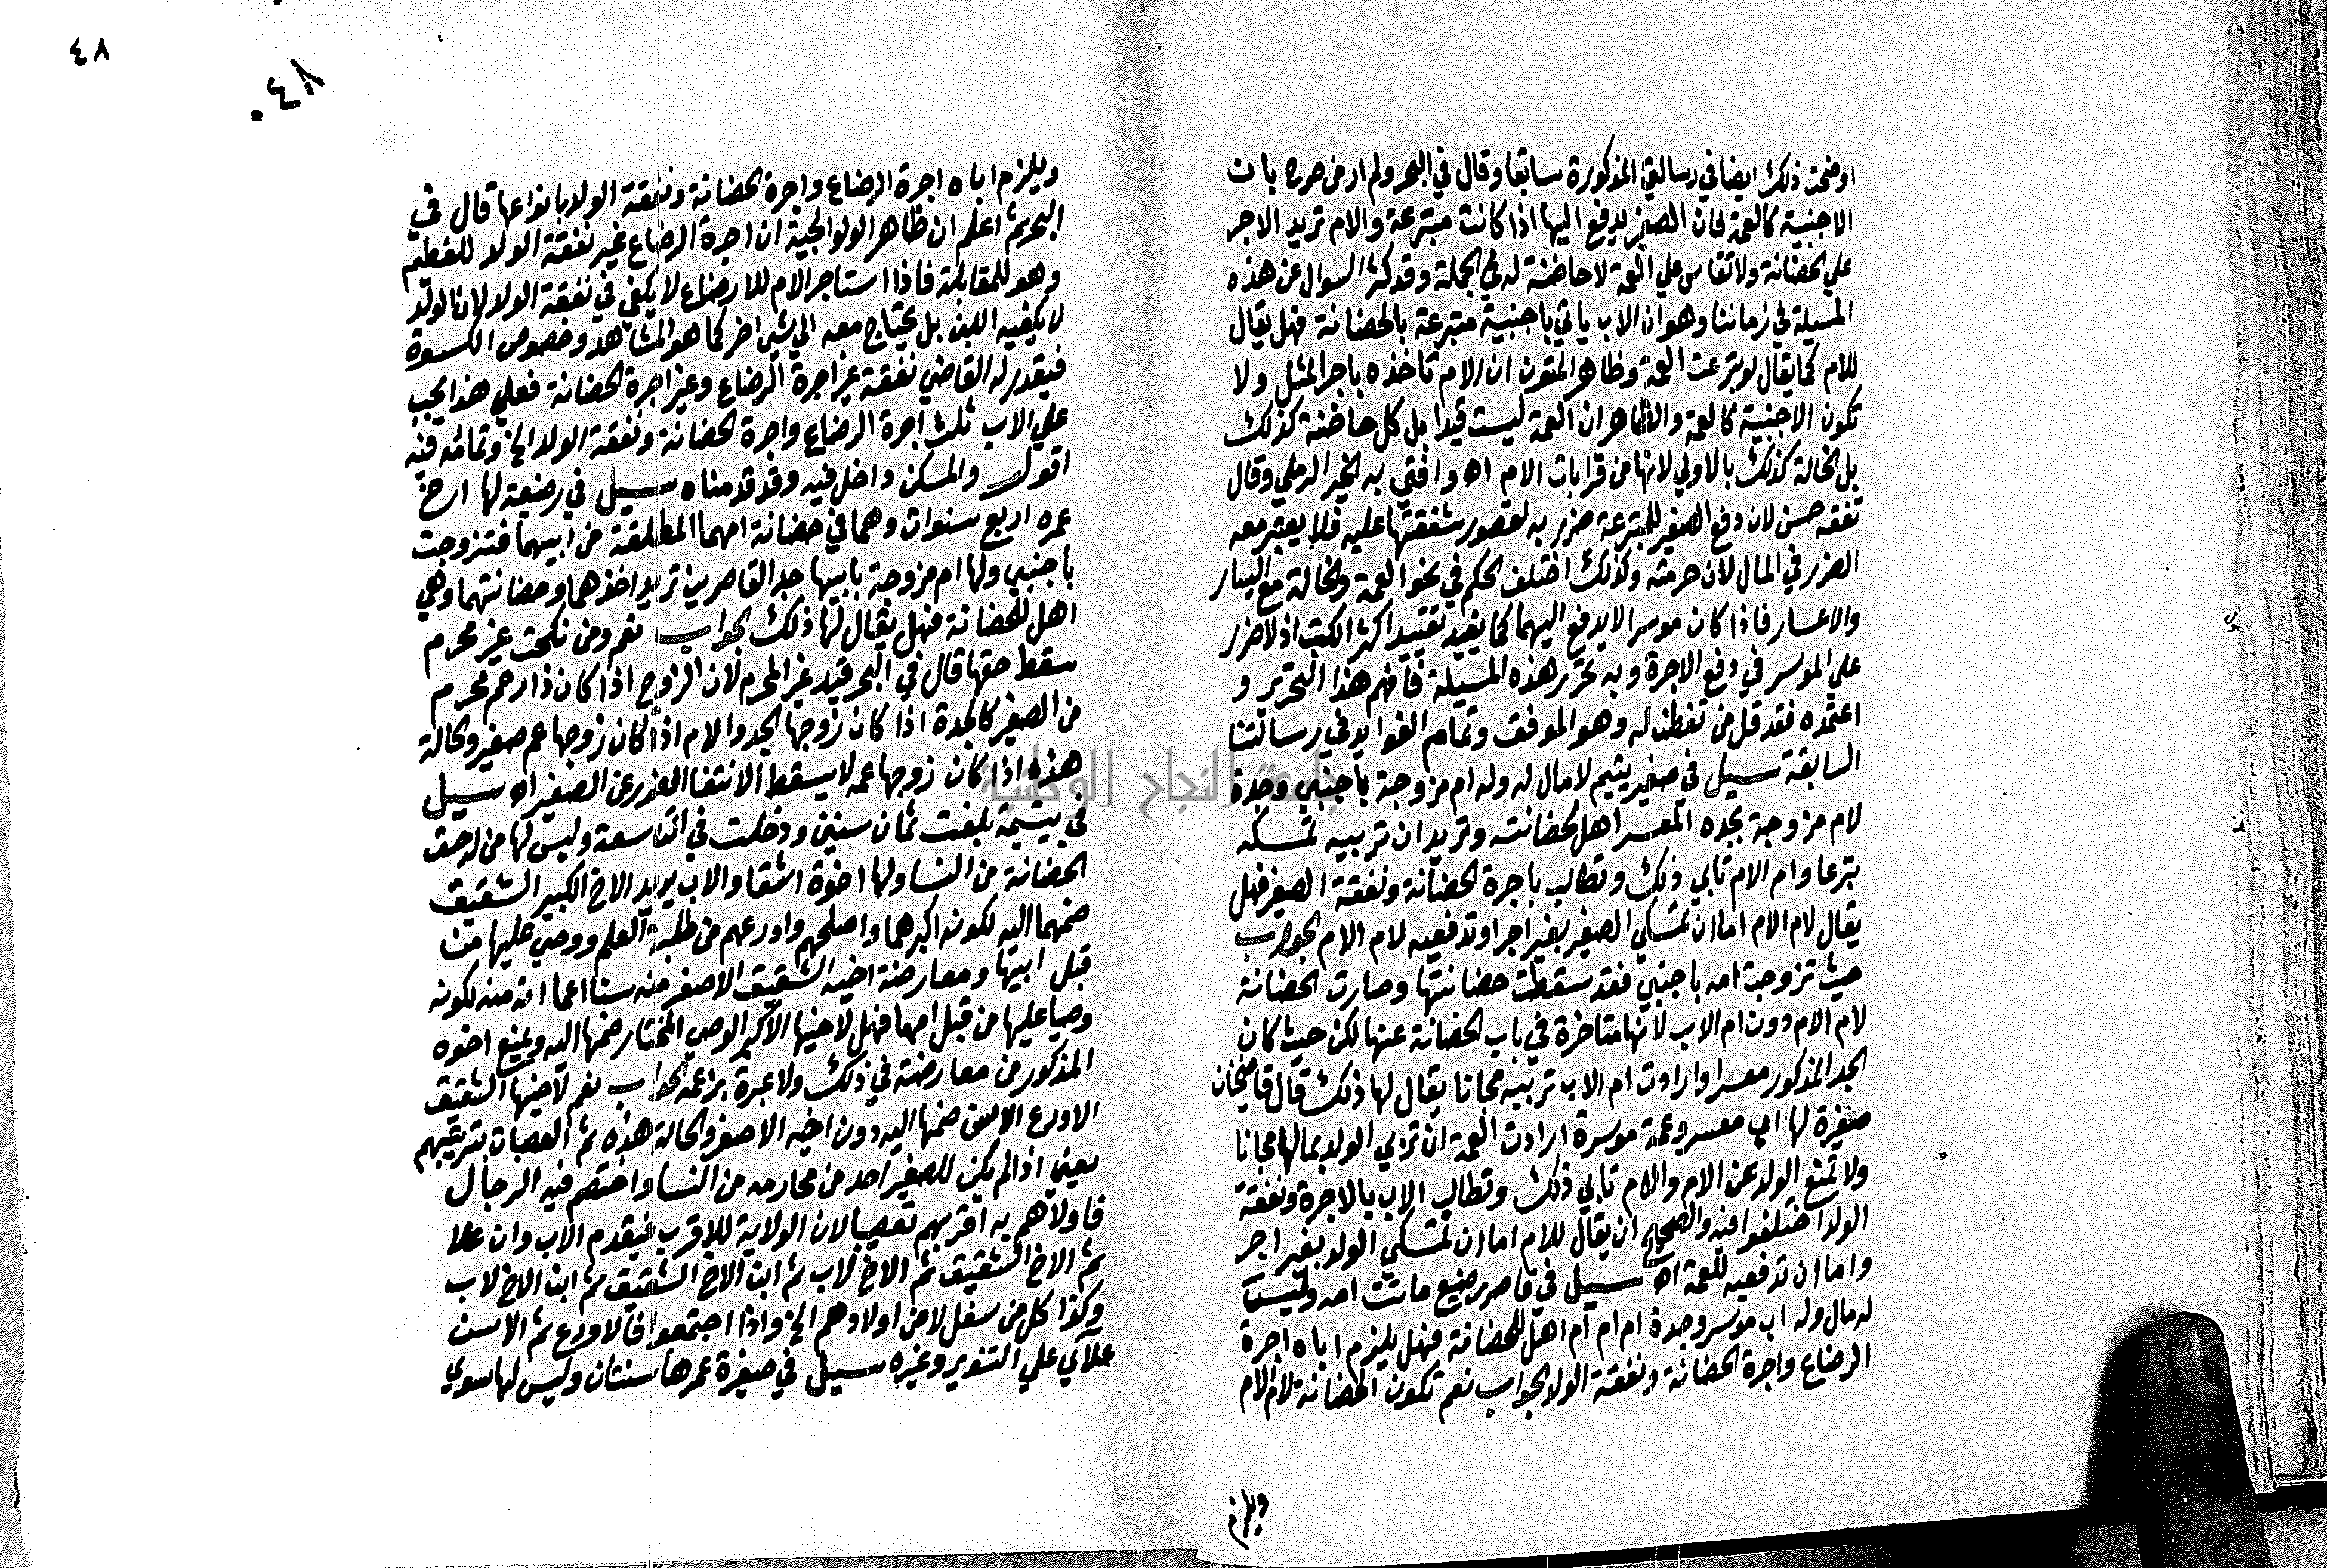 اوضحت ذلك ايضا في رسالتي المذكورة سابقا وقال في البحر ولم ار من صرح بان
الاجنبية كالعمة فان الصغير يدفع اليها اذا كانت متبرعة والام تريد الاجر
علي الحضانة ولا تقاس علي العمة لا حاضنة له في الجملة وقد كثر السوال عن هذه
المسيلة في زماننا وهو ان الاب ياتي باجنبية متبرعة بالحضانة فهل يقال
للام كما يقال لو تبرعت العمة وظاهر المتون ان الام تاخذه باجر المثل ولا
تكون الاجنبية كالعمة والظاهر ان العمة ليست قيدا بل كل حاضنة كذلك
بل الخالة كذلك بالاولي لانها من قرابات الام اه وافتي به الخير الرملي وقال
تفقه حسن لان دفع الصغير للمتبرعة ضرر به لقصور شفقتها عليه فلا يعتبر معه
الضرر في المال لان حرمته وكذلك اختلف الحكم في نحو العمة والخالة مع اليسار
والاعسار فاذا كان موسرا لا يدفع اليهما كما يفيد تقييد اكثر الكتب اذ لا ضرر
علي الموسر في دفع الاجرة وبه تحرر هذه المسيلة فافهم هذا التحرير و
اعتمده فقد قل من تفطن له وهو الموفق وتمام الفوايد في رسالتنا
السابقة سيل في صغير يتيم لا مال له وله ام مزوجة باجنبي وجدة
لام مزوجة بجده المعسر اهل لحضانته وتريد ان تربيه تمسكه
تبرعا وام الام تابي ذلك وتطالب باجرة الحضانة ونفقة الصغير فهل
يقال لام الام اما ان تمسكي الصغير بغير اجر او تدفعيه لام الام الجواب
حيث تزوجت امه باجنبي فقد سقطت حضانتها وصارت الحضانة
لام الام دون ام الاب لانها متاخرة في باب الحضانة عنها لكن حيث كان
الجد المذكور معسرا وارادت ام الاب تربيه مجانا يقال لها ذلك قال قاضيخان
صغيرة لها اب معسر وعمة موسرة ارادت العمة ان تربي الولد بمالها مجانا
ولا تمنع الولد عن الام والام تابي ذلك وتطالب الاب بالاجرة ونفقة
الولد اختلفوا فيه والصحيح ان يقال للام اما ان تمسكي الولد بغير اجر
واما ان تدفعيه للعمة اه سيل في قاصر رضيع ماتت امه وليس
له مال وله اب موسر وجدة ام ام ام اهل للحضانة فهل يلزم اباه اجرة
الرضاع واجرة الحضانة ونفقة الولد الجواب نعم تكون الحضانة لام الام
ويلزم
٤٨
٠٤٨
ويلزم اباه اجرة الرضاع واجرة الحضانة ونفقة الولد بانواعها قال في
البحر ثم اعلم ان ظاهر الولوالجية ان اجرة الرضاع غير نفقة الولد للعطف
وهو للمقابلة فاذا استاجر الام للارضاع لا يكفي في نفقة الولد لان الولد
لا يكفيه اللبن بل يحتاج معه الي شي اخر كما هو المشاهد وخصوص الكسوة
فيقدر له القاضي نفقة غير اجرة الرضاع وغير اجرة الحضانة فعلي هذا يجب
علي الاب ثلث اجرة الرضاع واجرة الحضانة ونفقة الولد الخ وتمامه فيه
اقول والمسكن داخل فيه وقد قدمناه سيل في رضيعة لها اخ
عمره اربع سنوات وهما في حضانة امهما المطلقة من ابيهما فتزوجت
باجنبي ولها ام مزوجة بابيها جد القاصرين تريد اخذهما وحضانتهما وهي
اهل للحضانة فهل يقال لها ذلك الجواب نعم ومن نكحت غير محرم
سقط حقها قال في البحر قيد غير المحرم لان الزوج اذا كان ذا رحم محرم
من الصغير كالجدة اذا كان زوجها الجد والام اذا كان زوجها عم صغير والحالة
هذه اذا كان زوجها عمه لا يسقط لانتفا الضرر عن الصغير اه سيل
في يتيمة بلغت ثمان سنين ودخلت في التاسعة وليس لها من له حق
الحضانة من النسا ولها اخوة اشقا والاب يريد الاخ الكبير الشقيق
ضمهما اليه لكونه اكبرهما واصلحهم واورعهم من طلبة العلم ووصي عليها من
قبل ابيها ومعارضة اخيه الشقيق الاصغر منه سنا اعما انه منه لكونه
وصيا عليها من قبل امها فهل لاخيها الاكبر الوصي المختار ضمها اليه ويمنع اخوه
المذكور من معارضته في ذلك ولا عبرة بزعمه الجواب نعم لاخيها الشقيق
الاورع الاسن ضمها اليه دون اخيه الاصغر والحالة هذه ثم العصبات بترتيبهم
يعني اذا لم يكن للصغير احد من محارمه من النسا واختصم فيه الرجال
فاولاهم به اقربهم تعصيبا لان الولاية للاقرب فيقدم الاب وان علا
ثم الاخ الشقيق ثم الاخ لاب ثم ابن الاخ الشقيق ثم ابن الاخ لاب
وكذا كل من سفل لامن اولادهم الخ واذا اجتمعوا فالاورع ثم الاسن
علائي علي التنوير وغيره سيل في صغيرة عمرها سنتان وليس لها سوي
جامعة النجاح الوطنية